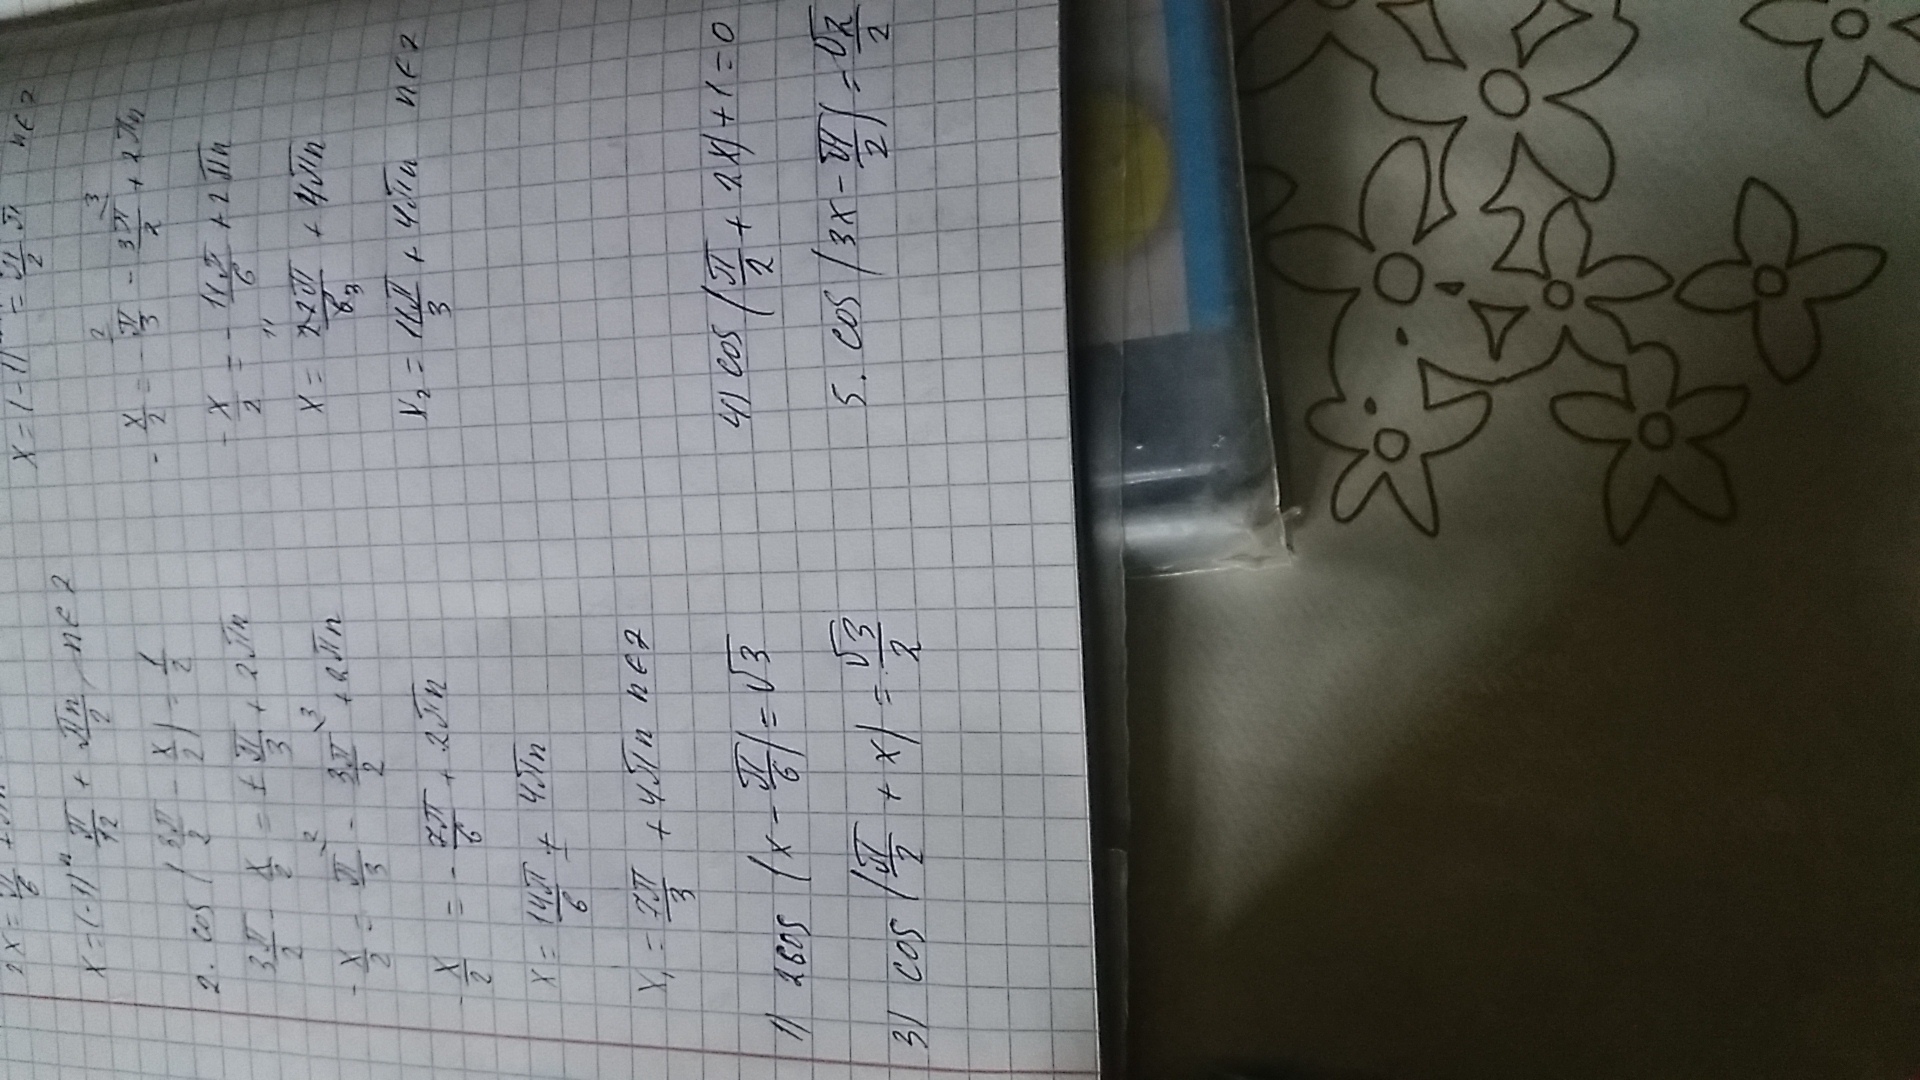 x = (-1)ⁿ π/12 + πn/2, n∈z
2. cos(3π/2 - x/2) = 1/2
3π/2 - x/2 = ± π/3 + 2πn
-x/2 = π/3 - 3π/2 + 2πn
-x/2 = -7π/6 + 2πn
x = 14π/6 ± 4πn
x₁ = 7π/3 + 4πn n∈z
-x/2 = -π/3 - 3π/2 + 2πn
-x/2 = -11π/6 + 2πn
x = 22π/6 + 4πn
x₂ = 11π/3 + 4πn n∈z
1) 2cos(x - π/6) = √3
4) cos(π/2 + 2x) + 1 = 0
3) cos(π/2 + x) = √3/2
5. cos(3x - π/2) = √2/2